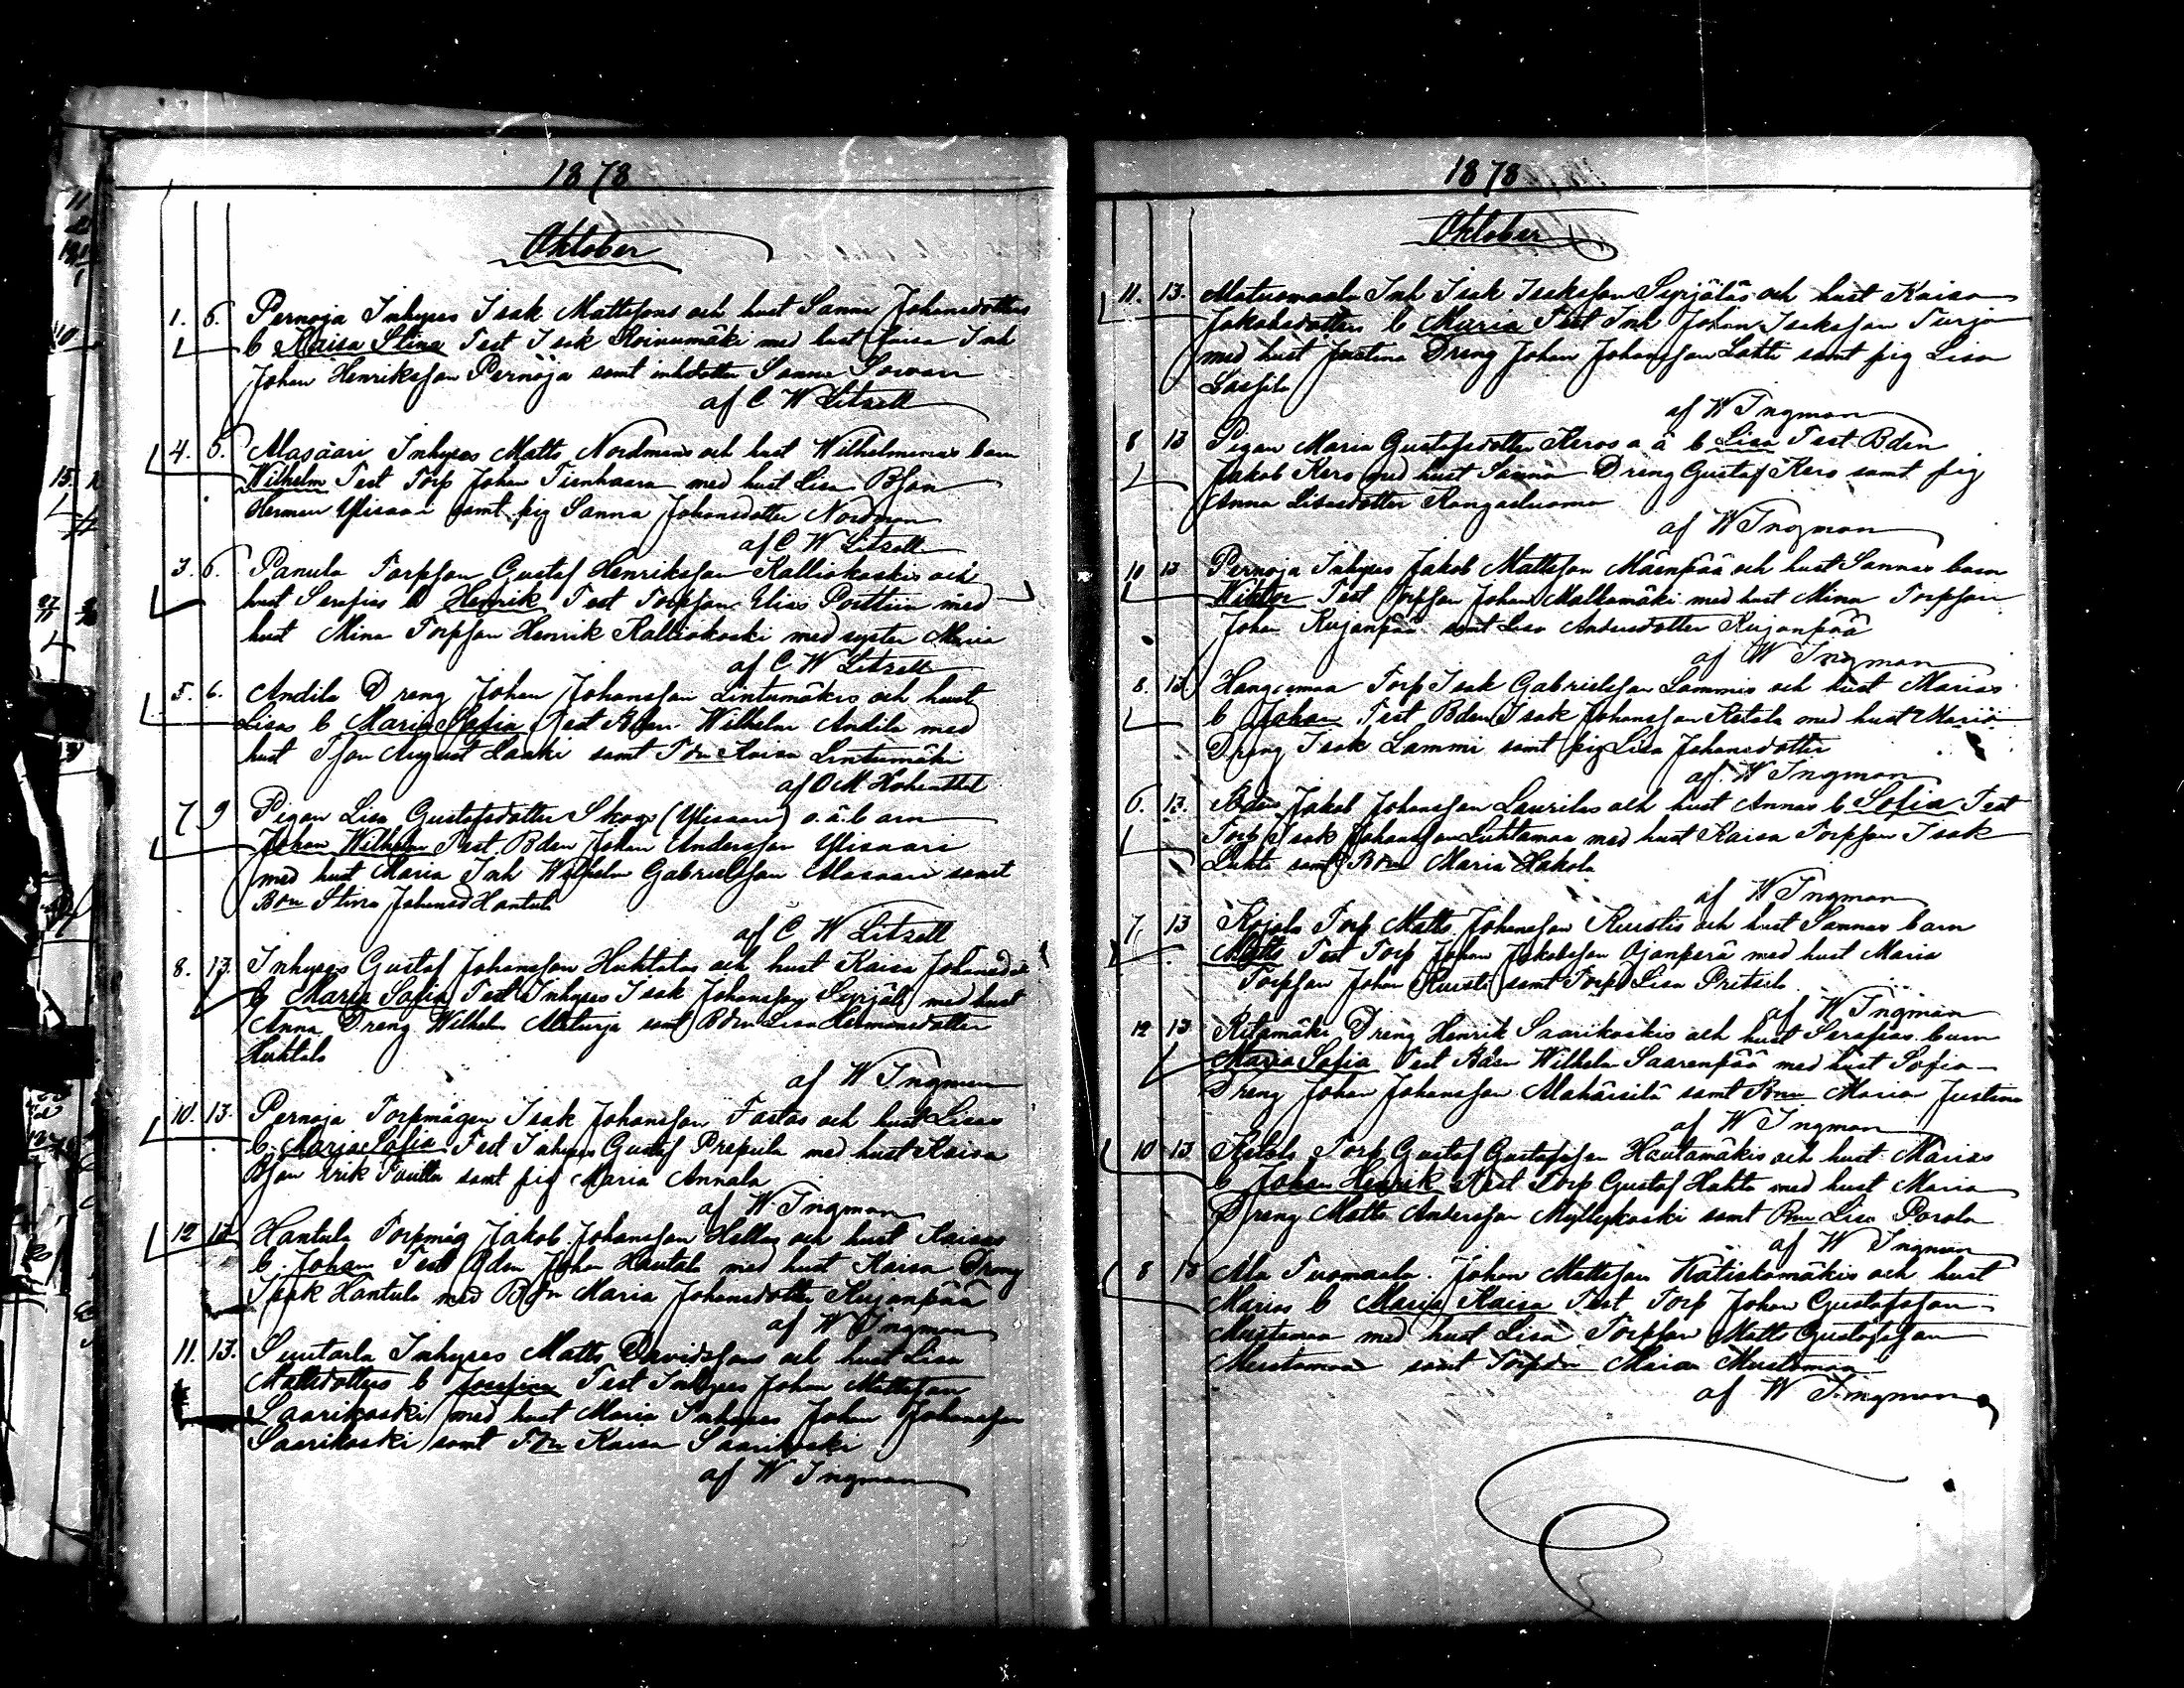 1878
Oktober
1. 6. Pernoja Inhyses Isak Mattssons och hust Sanna Johansdotters
b Kaisa Stina Test Isak Koivumäki med hust Caisa Inh
Johan Henriksson Pernöja samt inhdotter Sanna
af C W Litzell
4. 5. Alasaari Inhyses Matts Nordmans och hust Wilhelminas barn
Wilhelm Test Torp Johan med hust Lisa Bson
Herman Ylisaari samt pig Sanna Johansdotter Nordman
af C W Litzell
3. 6. Panula Torpson Gustaf Henriksson Kalliokoskis och
hust Serafias b Henrik Test Torpson Elias Porttiin med
hust Mina Torpson Henrik Kalliokoski med syster Maria
af C W Litzell
5. 6. Andila Dreng Johan Johansson Lintumäkis och hust
Lisas b Maria Sofia Test Bden Wilhelm Andila med
hust Tson August Laaki samt Tdn Kaisa Lintumäki
af O M Hohenthal
7 9 Pigan Lisa Gustafsdotter Skogs (Ylisaari) o.ä. barn
Johan Wilhelm Test Bden Johan Andersson Ylisaari
med hust Maria Inh Wilhelm Gabrielsson Alasaari samt
Bdn Stina Johansd Hantula
af C W Litzell
8. 13. Inhyses Gustaf Johansson Huhtalas och hust Kaisa Johansd
b Maria Sofia Test Inhyses Isak Johansson Syrjälä med hust
Anna Dreng Wilhelm Alaturja samt Bdn Lisa Hermansdotter
Huhtala
af W Ingman
10. 13. Pernoja Torpmågen Isak Johansson Fastas och hust Lisas
b. Maria Sofia Test Inhyses Gustaf Prepula med hust Kaisa
Bson Erik samt pig Maria Annala
af W Ingman
12 13 Hantula Torpmåg Jakob Johansson Hallas och hust Kaisas
b. Johan Test Bden Johan Hautala med hust Kaisa Dreng
Isak Hantula med Bdn Maria Johansdotter Kujanpää
af W Ingman
11. 13. Luutarla Inhyses Matts Davidssons och hust Lisa
Mattsdotters b Josefina Test Inhyses Johan Mattsson
Saarikoski med hust Maria Inhyses Johan Johansson
Saarikoski samt Tdn Kaisa Saarikoski
af W Ingman
1878
Oktober
11. 13. Alatuomaala Inh Isak Isaksson Syrjäläs och hust Kaisa
Jakobsdotters b Maria Test Inh Johan Isaksson Turja
med hust Justina Dreng Johan Johansson Lahti samt pig Lisa
Lassila
af W Ingman
8 13 Pigan Maria Gustafsdotter Keros o ä b Lisa Test Bden
Jakob Kero med hust Sanna Dreng Gustaf Kero samt pig
Anna Lisasdotter Kangasluoma
af W Ingman
10 13 Pernoja Inhyses Jakob Mattsson Mäenpää och hust Sannas barn
Wiktor Test Torpson Johan Mallamäki med hust Mina Torpson
Johan Kujanpää samt Lisa Andersdotter Kujanpää
af W Ingman
8. 13 Hangasmaa Torp Isak Gabrielsson Lammis och hust Marias
b Johan Test Bden Isak Johansson Ketola med hust Maria
Dreng Isak Lammi samt pig Lisa Johansdotter
af W Ingman
6. 13. Bden Jakob Johansson Laurilas och hust Annas b Sofia Test
Torp Isak Johansson Luhtamaa med hust Kaisa Torpson Isak
Luhta samt Bdn Maria Hakola
af W Ingman
7. 13 Kojola Torp Matts Johansson Kuustis och hust Sannas barn
Matts Test Torp Johan Jakobsson Ojanperä med hust Maria
Torpson Johan Kuusti samt Torpd Lisa Pritsila
af W Ingman
12 13 Ritamäki Dreng Henrik Saarikoskis och hust Serafias barn
Maria Sofia Test Bden Wilhelm Saarenpää med hust Sofia
Dreng Johan Johansson Alahäisilä samt Bdn Maria Justina
af W Ingman
10 13 Ketola Torp Gustaf Gustafsson Hautamäkis och hust Marias
b Johan Henrik Test Torp Gustaf Hahto med hust Maria
Dreng Matts Andersson Myllykoski samt Bdn Lisa Porola
af W Ingman
8 13 Ala Tuomaala. Johan Mattsson Katiskomäkis och hust
Marias b Maria Kaisa Test Torp Johan Gustafsson
Mustamaa med hust Lisa Torpson Matts Gustafsson
Mustamaa samt Torpdn Maria Mustamaa
af W Ingman